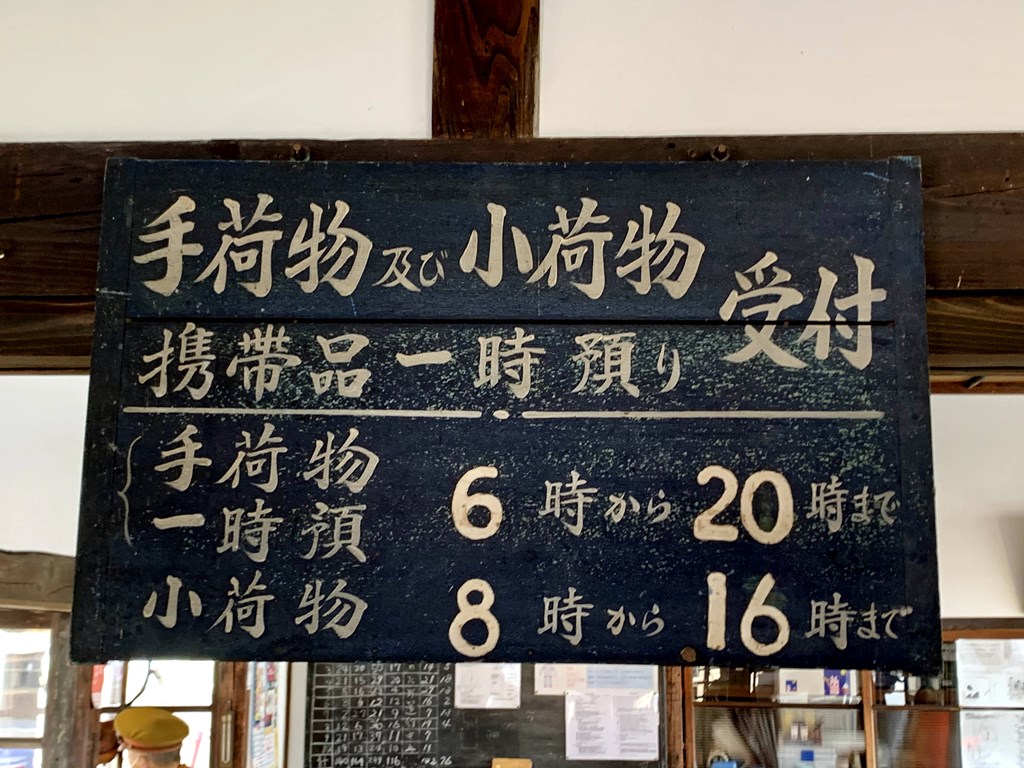 手荷物及び小荷物
受付
携帯品一時預り
手荷物
一時預
6時から20時まで
小荷物 8時から16時まで